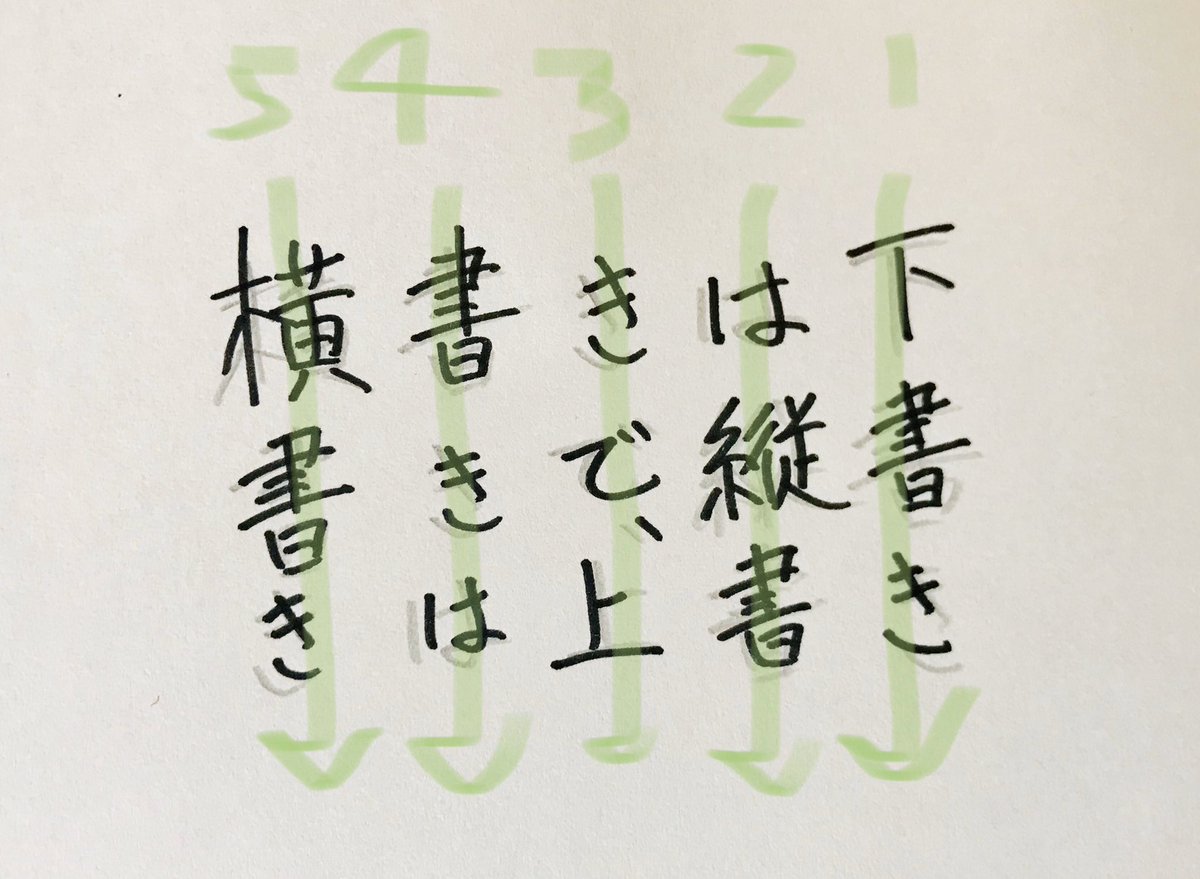 1
下書き
2
は縦書
3
きで、上
4
書きは
5
横書き